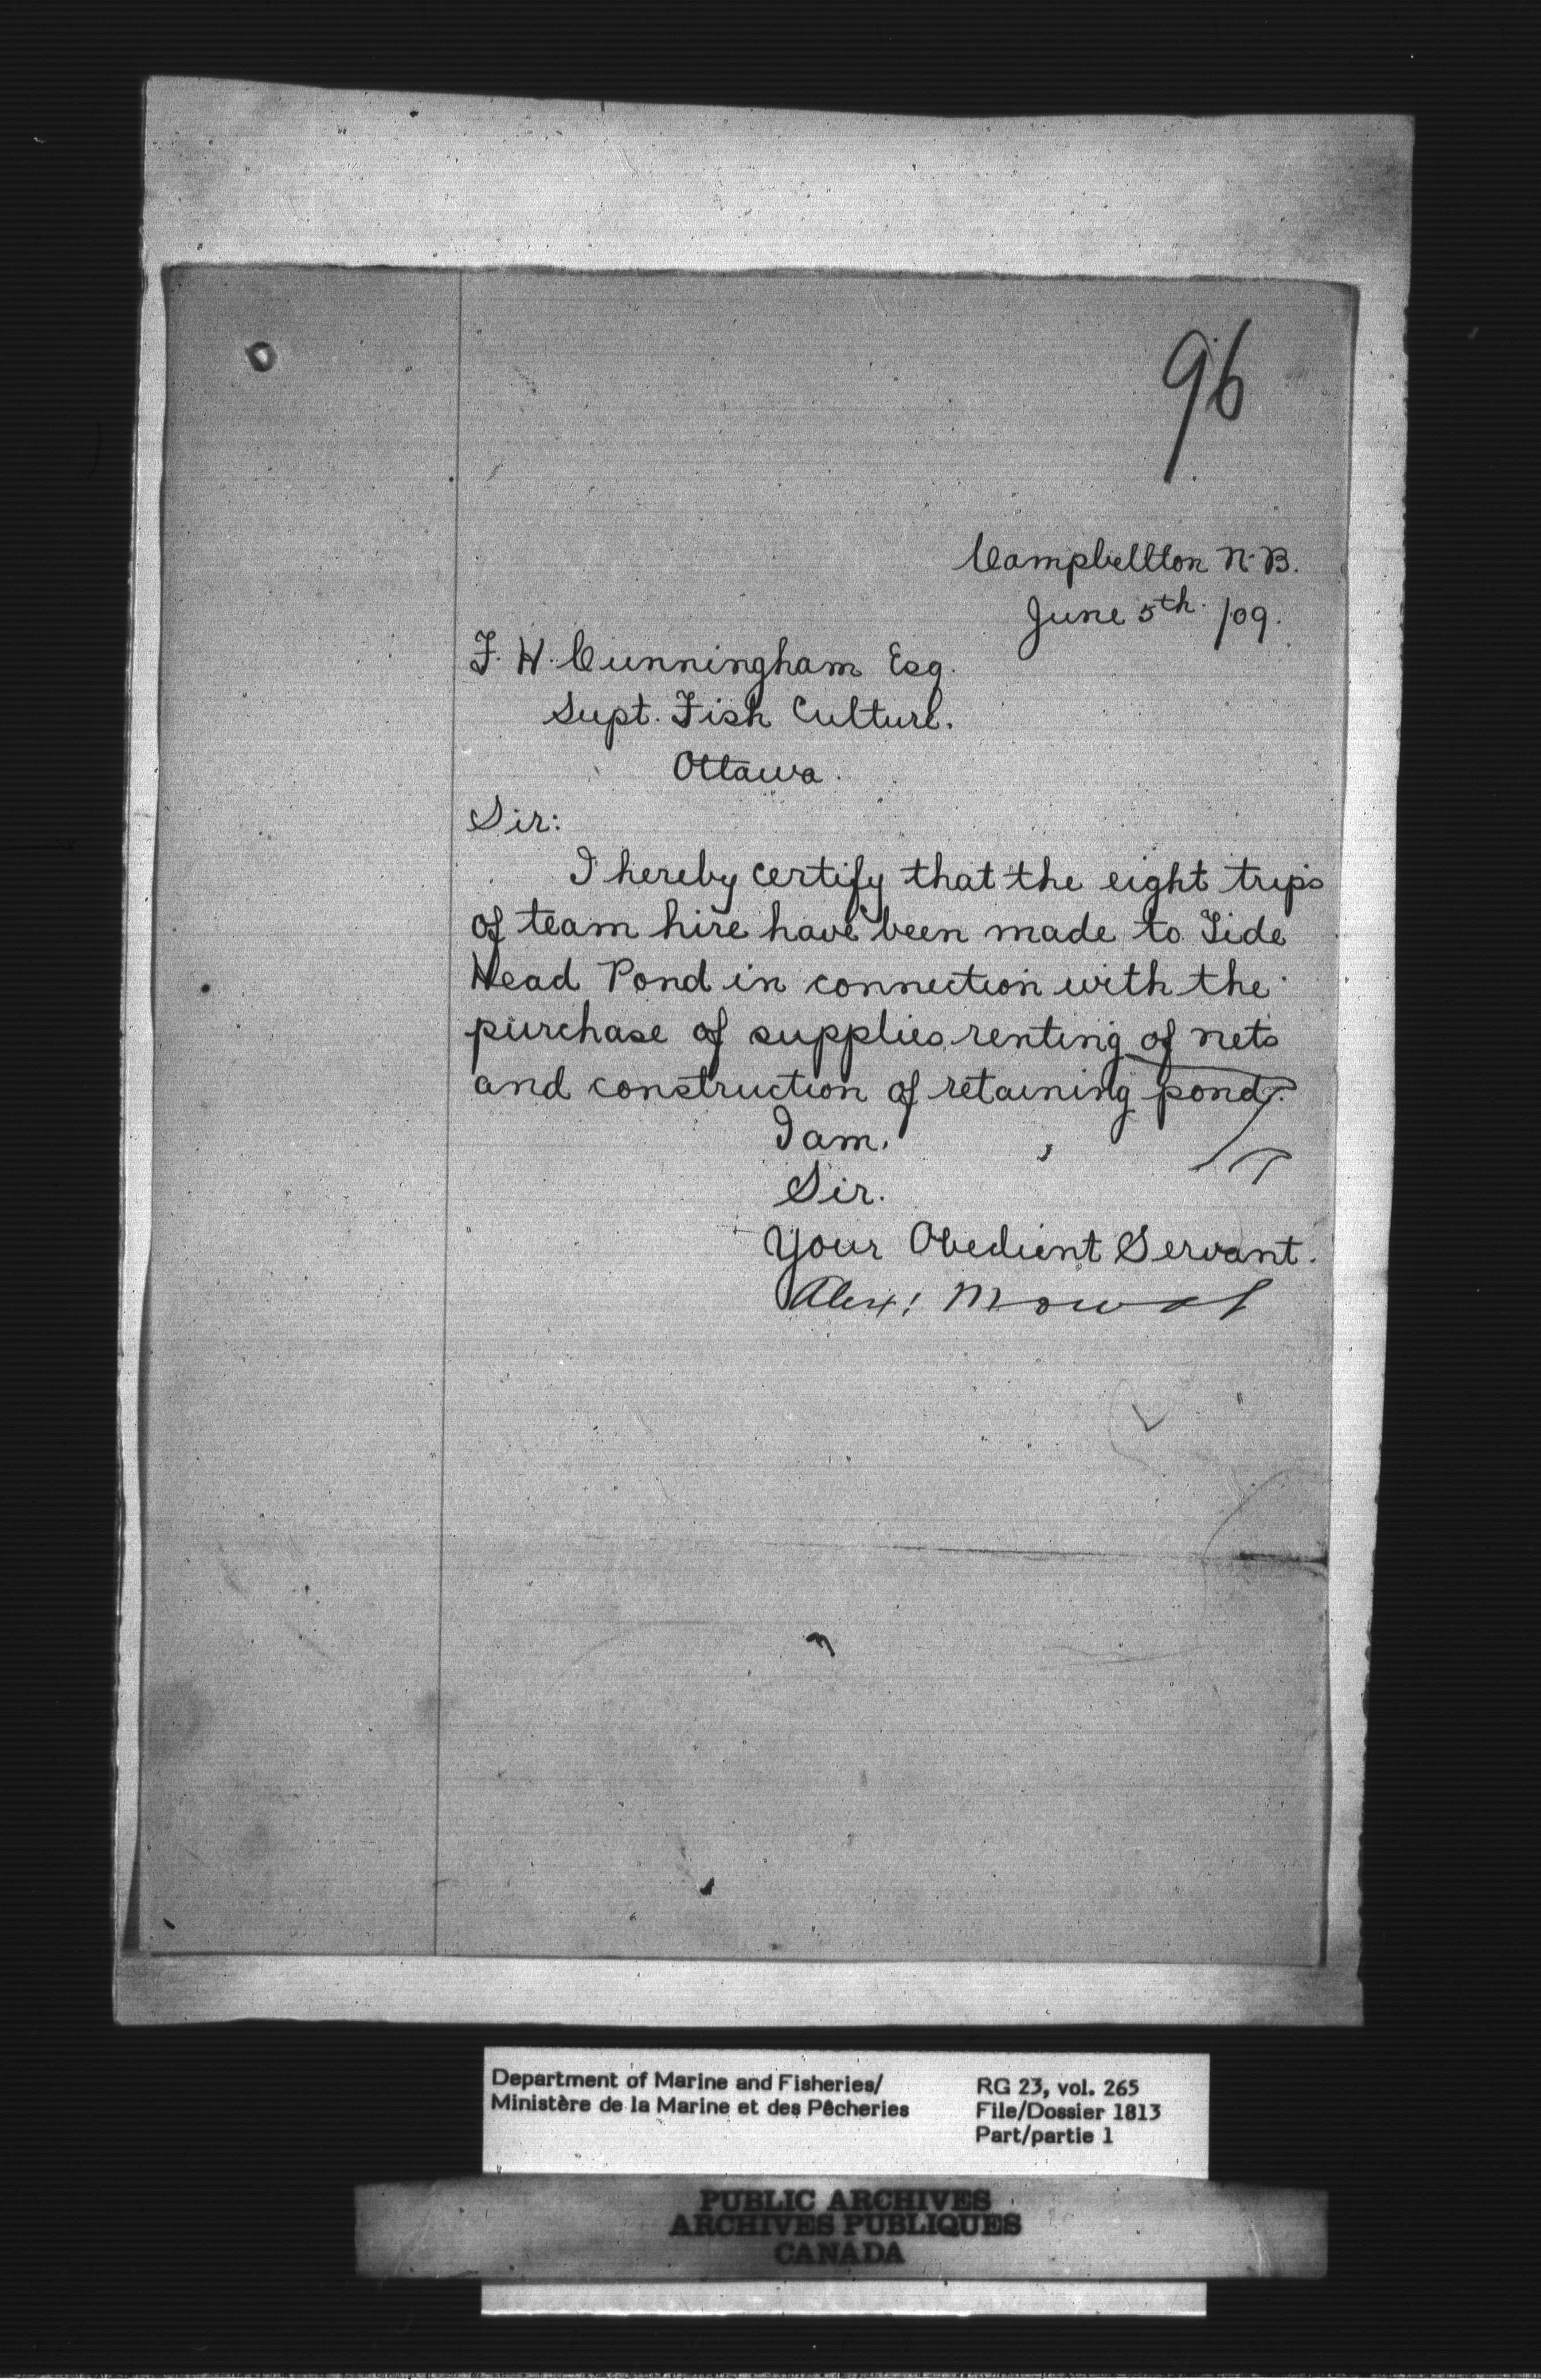 96
Campbellton N.B.
June 5th. /09.
F. H. Cunningham Esq.
Supt. Fish Culture.
Ottawa.
Sir:
I hereby certify that the eight trips
of team hire have been made to Tide
Head Pond in connection with the
purchase of supplies, renting of nets
and construction of retaining pond.
I am,
Sir.
Your Obedient Servant.
Alex: Mowat
Department of Marine and Fisheries/
Ministère de la Marine et des Pêcheries
RG 23, vol. 265
File/Dossier 1813
Part/partie 1
PUBLIC ARCHIVES
ARCHIVES PUBLIQUES
CANADA